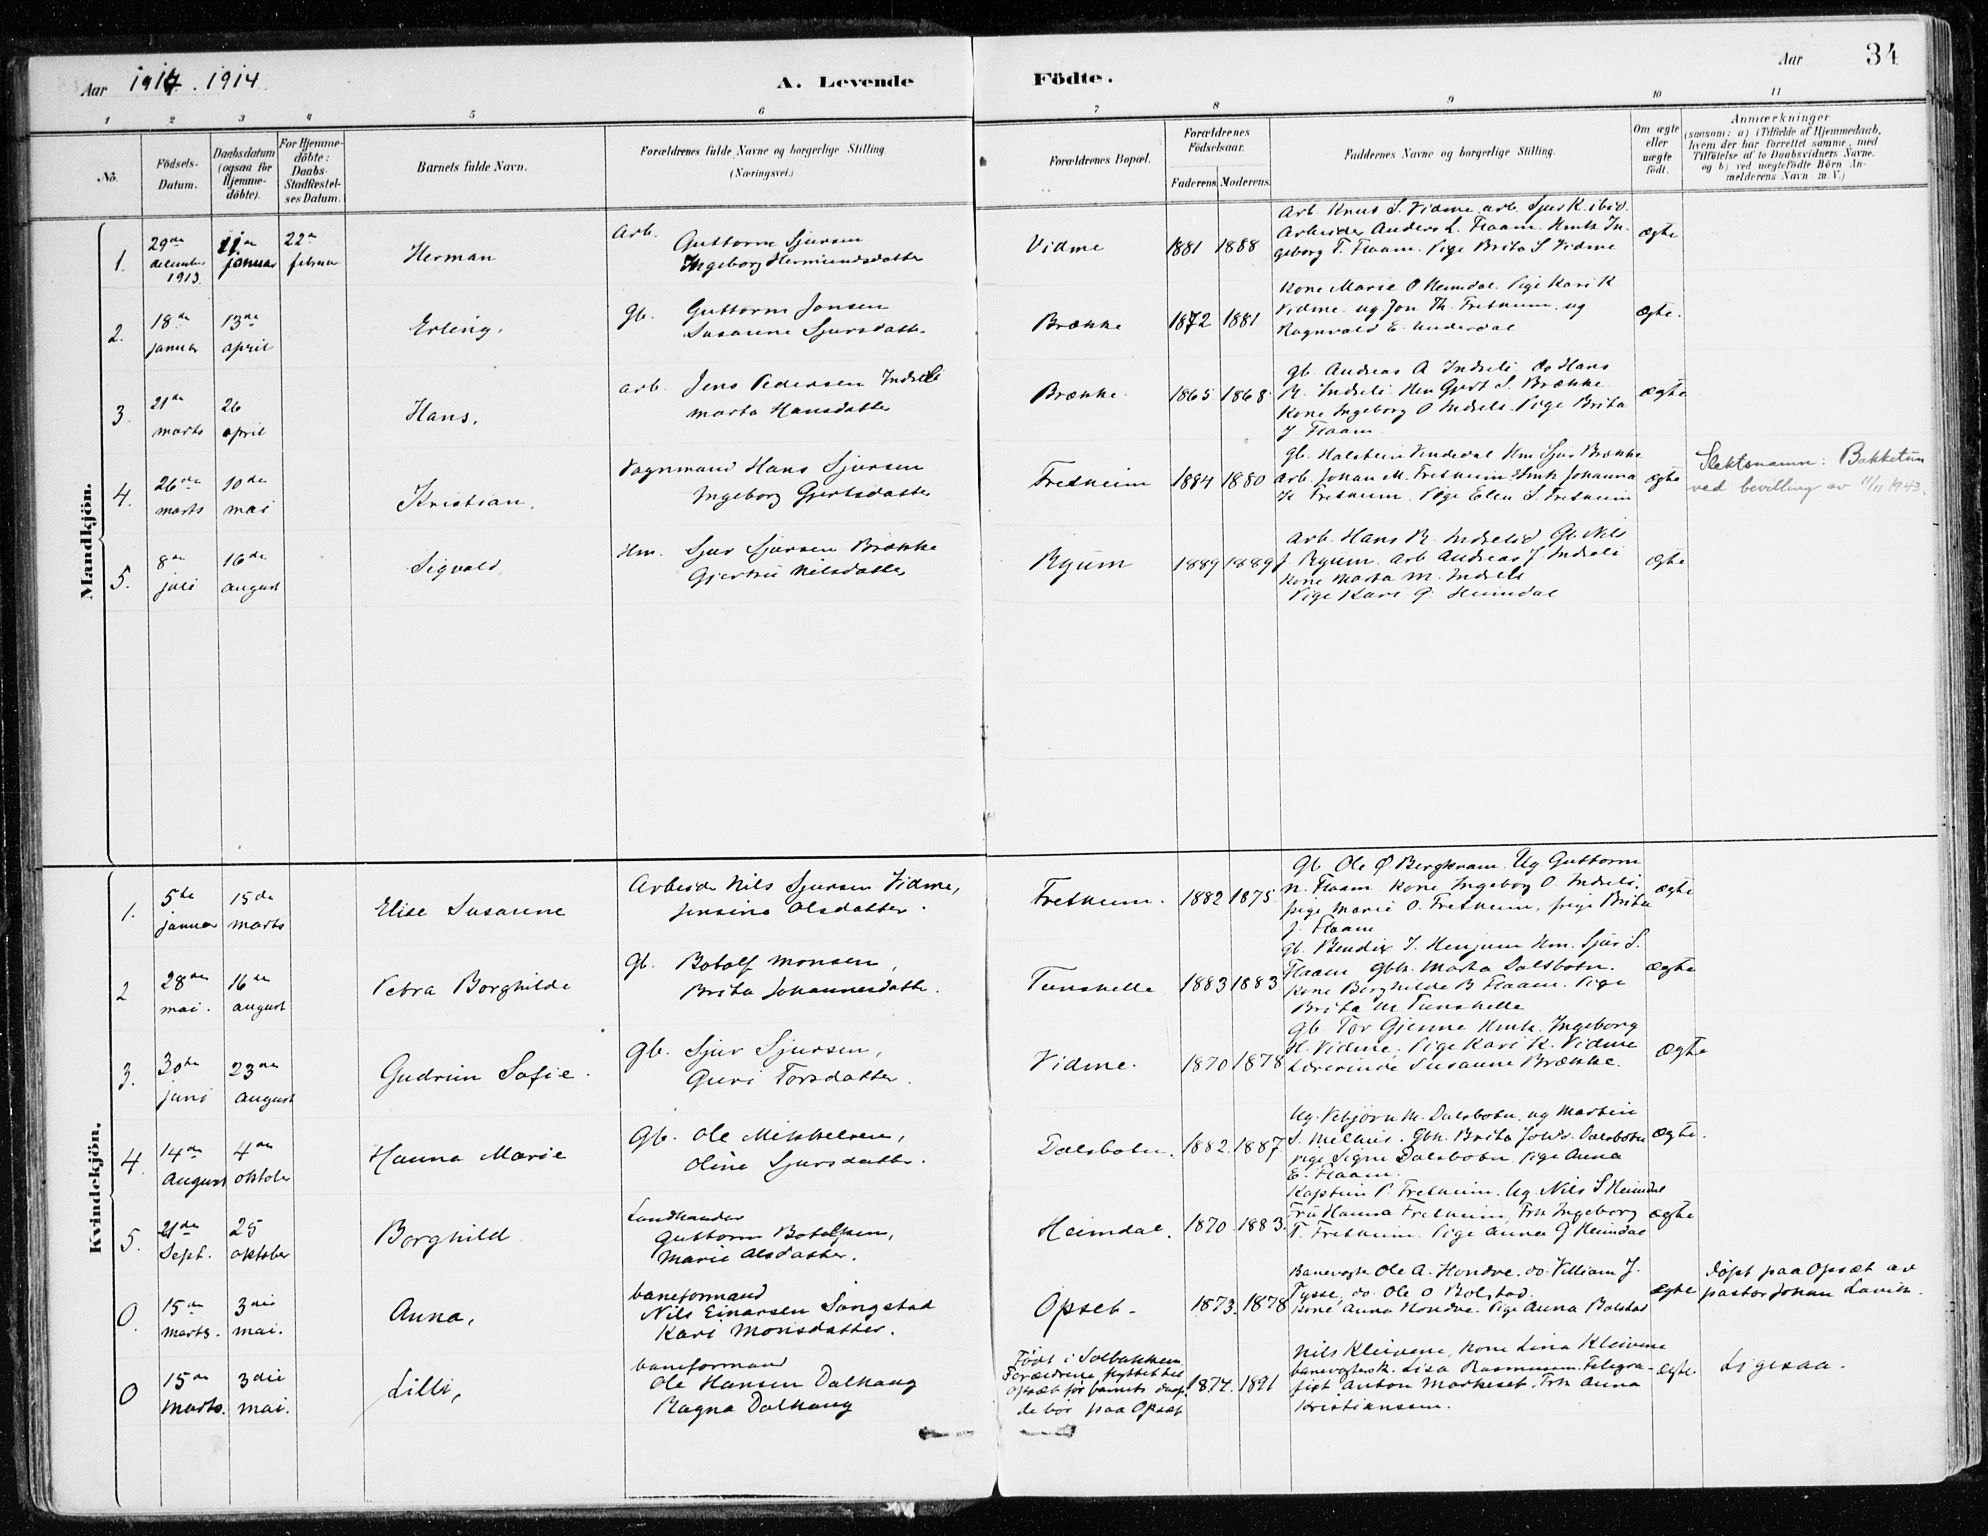 Aar 1914. 1914.
A. Levende Födte.
Aar 34
1 2 3 4 5 6 7 8 9 10 11
No.
Födsels-Datum.
Daabsdatum (ogsaa för Hjemme-döbte).
For Hjemme-döbte: Daabs-Stadfæstel-ses Datum.
Barnets fulde Navn.
Forældrenes fulde Navne og borgerlige Stilling.
(Næringsvei.)
Forældrenes Bopæl.
Forældrenes Födselsaar.
Faderens Moderens.
Faddernes Navne og borgerlige Stilling.
Om ægte eller uægte födt.
Anmærkninger
(saasom: a) i Tilfælde af Hjemmedaab,
hvem der har forrettet samme, med
Tilföielse af to Daabsvidners Navne.
og b) ved uægtefödte Börn An-
melderens Navn m. V.)
Mandkjön.
1. 29de december 1913. 11te januar 22de februar
Herman
Arb. Guttorm Sjursen
Ingeborg Hermundsdatter
Vidme 1881 1888
Arb. Knut S. Vidme, arb. Sjur K. ibid.
Arbeider Anders L. Flaam. Hmk In-
geborg T. Flaam. Pige Brita S Vidme
ægte
2. 18de januar 13de april
Erling,
Gb. Guttorm Jonsen
Susanne Sjursdatter
Brække 1872 1881
Kone Marie O Heimdal. Pige Kari K
Vidme. ug Jon Th. Fretheim. ug
Ragnvald E. Underdal
ægte.
3. 21de marts 26 april
Hans,
arb. Jens Pedersen Indreli
Marta Hansdatter
Brække. 1865 1868.
gb. Andreas A Indreli. do Hans
R. Indreli. Hm Gjert S. Brække
Kone Ingeborg O Indreli. Pige Brita
J. Flaam
ægte
4. 26de marts 10de mai
Kristian,
Vognmand Hans Sjursen
Ingeborg Gjertsdatter
Fretheim 1884 1880
gb. Halstein Vindedal Hm Sjur Brække
arb. Johan M. Fretheim. Hmk Johanna
H Fretheim. Pige Elen S. Fretheim
ægte
Slektsnamn: Bakketun
ved bevilling av 11/11 1943.
5. 8de juli 16de august
Sigvald,
Hm. Sjur Sjursen Brække
Gjertru Nilsdatter
Ryum 1889 1889
Arb. Hans R. Indrelid Gb. Nils
J. Ryum. Arb Andreas J. Indreli
Kone Marta M. Indreli
Pige Kari G. Heimdal
ægte
Kvindekjön.
1. 5te januar 15de marts
Elise Susanne
Arbeider Nils Sjursen Vidme,
Jensine Olsdatter.
Fretheim. 1882 1875
Gb Ole Ø Bergkvam. Ug Guttorm
N. Flaam Kone Ingeborg O. Indreli.
pige Marie O. Fretheim, pige Brita
J. Flaam
ægte
2 28de mai. 16de august
Petra Borghilde
Gb. Botolf Monsen,
Brita Johannesdatter.
Tunshelle 1883 1883
Gb. Bendix J. Henjum Hm. Sjur S.
Flaam Gbk. Marta Dalsbotn.
Kone Borghilde B Flaam. Pige
Brita M Tunshelle
ægte
3. 30te juni 23de august
Gudrun Sofie.
Gb. Sjur Sjursen,
Guri Torsdatter.
Vidme. 1870 1878
Gb. Tor Gjerme Hmk. Ingeborg
H. Vidme, Pige Kari K. Vidme
Lærerinde Susanne Brække.
ægte
4. 14de August 4de oktober
Hanna Marie
Gb. Ole Mikkelsen,
Oline Sjursdatter.
Dalsbotn. 1882. 1887
Ug. Vebjørn M. Dalsbotn, ug Martin
S. Melhus. Gbk. Brita Johs. Dalsbotn
pige Signe Dalsbotn, Pige Anna
E. Flaam.
ægte.
5. 21de Sept. 25 oktober
Borghild.
Landhandler
Guttorm Botolfsen,
Marie Olsdatter.
Heimdal. 1870 1883.
Kaptein P. Fretheim. Ug. Nils S Heimdal
Fru Hanna Fretheim, Frk Ingeborg
T. Fretheim. Pige Anna G. Heimdal
ægte
0. 15de marts. 3die mai.
Anna,
baneformand
Nils Einarsen Songstad
Kari Monsdatter.
Opset. 1873. 1878
Banevogter Ole A. Hondve. do. Villiam J.
Tysse, do. Ole O Bolstad.
Kone Anna Hondve. Pige Anna Bolstad
ægte
døpt paa Opsæt av
pastor Johan Lavik.
0 15de Marts. 3die mai.
Lilli,
baneformand
Ole Hansen Dalhaug
Ragna Dalhaug
Født i Solbakken
Forældrene flyttet til
Opsæt før barnets daap.
de bor paa Opsæt
1874. 1891
Nils Kleivene, Kone Lina Kleivene
banevogtersk. Lisa Rasmussen. Telegra-
fist Anton Markeset. Frk Anna
Kristiansen.
ægte
Ligesaa.